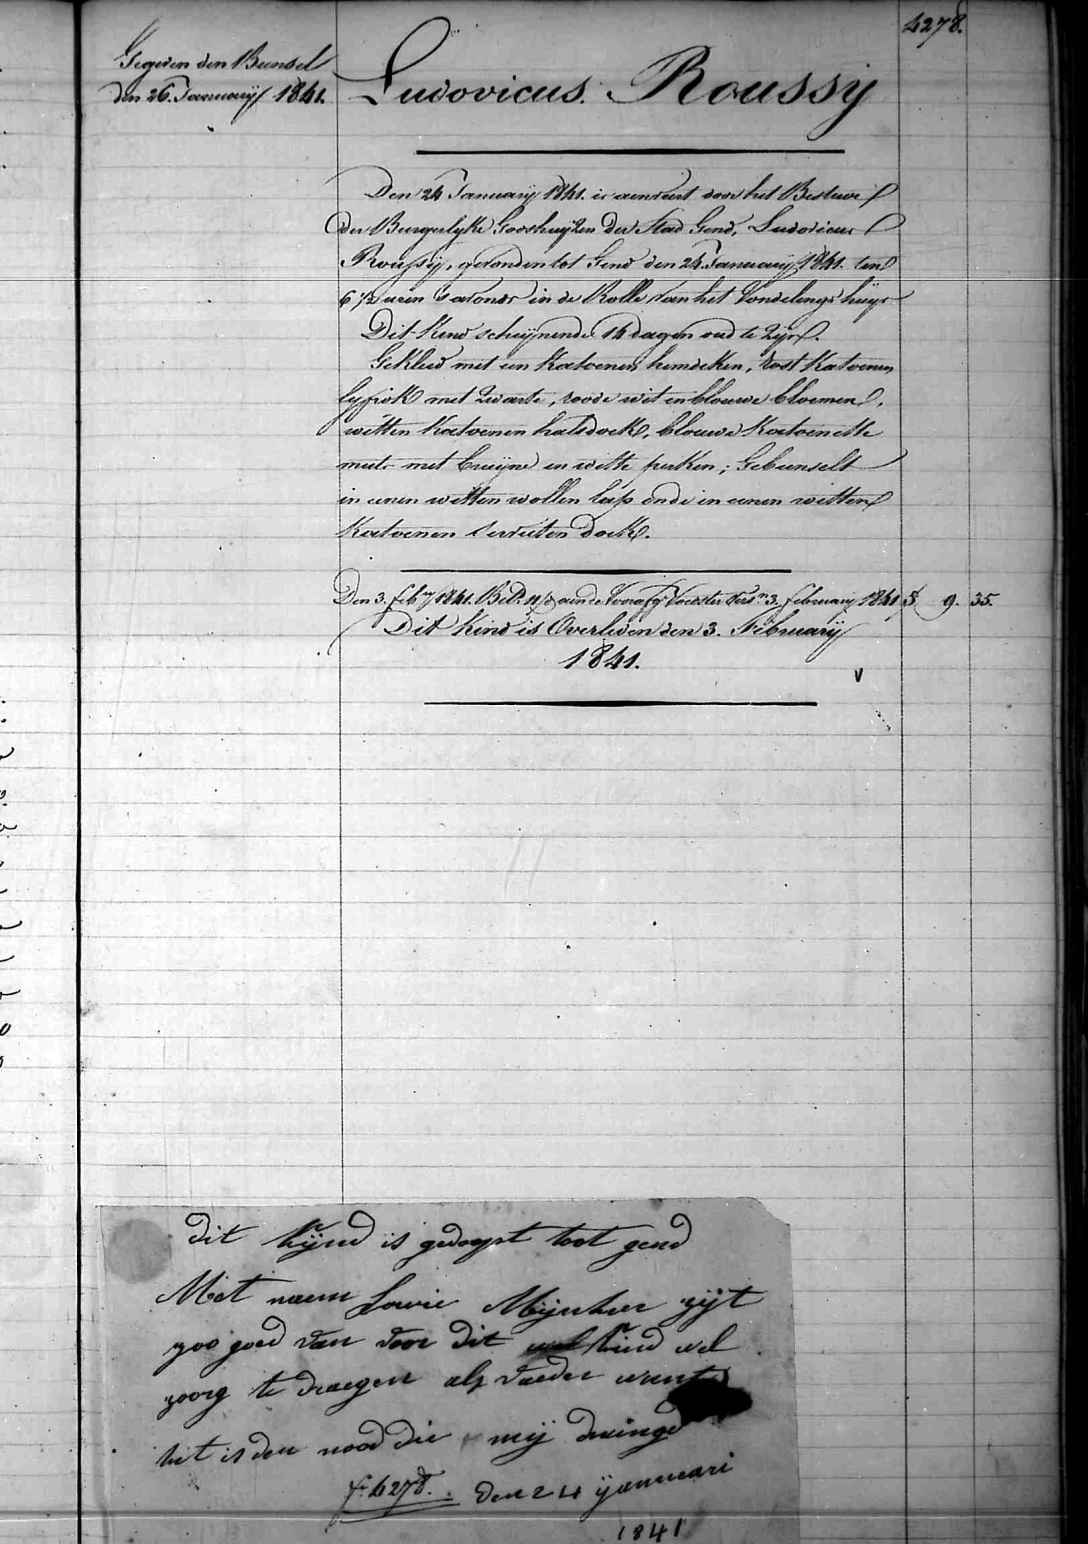 4278.
Gegeven den Bunsel
den 26. January 1841.
Ludovicus. Roussy
Den 24 January 1841. is aenveert door het Bestuur
der Burgerlyke Godshuyzen der Stad Gend, Ludovicus
Roussy, gevonden tot Gend den 24. January 1841. ten
6 1/2 uren s'avonds in de Rolle van het Vondelings huys
Dit Kind scheynende 14 dagen oud te zyn.
Gekleed met een Katoenen hemdeken, rost Katoenen
lyfrok met zwarte, roode wit en blauwe bloemen,
witten Katoenen halsdoek, blauwe Katoenette
muts met bruyne en witte perken; Gebunselt
in eenen witten wollen lap ende in eenen witten
Katoenen servieten doek.
Den 3. feb.ry 1841. aen de Voester 3. february 1841 9. 35.
Dit Kind is Overleden den 3. February
1841.
v
dit kynd is gedoopt toot gend
Met naem Lowie Mynheer zyt
zoo goed van voor dit kind wel
zoorg te draegen als vaeder want
het is den nood die mij dwingd
f. 4278. den 24 yanneuari
1841